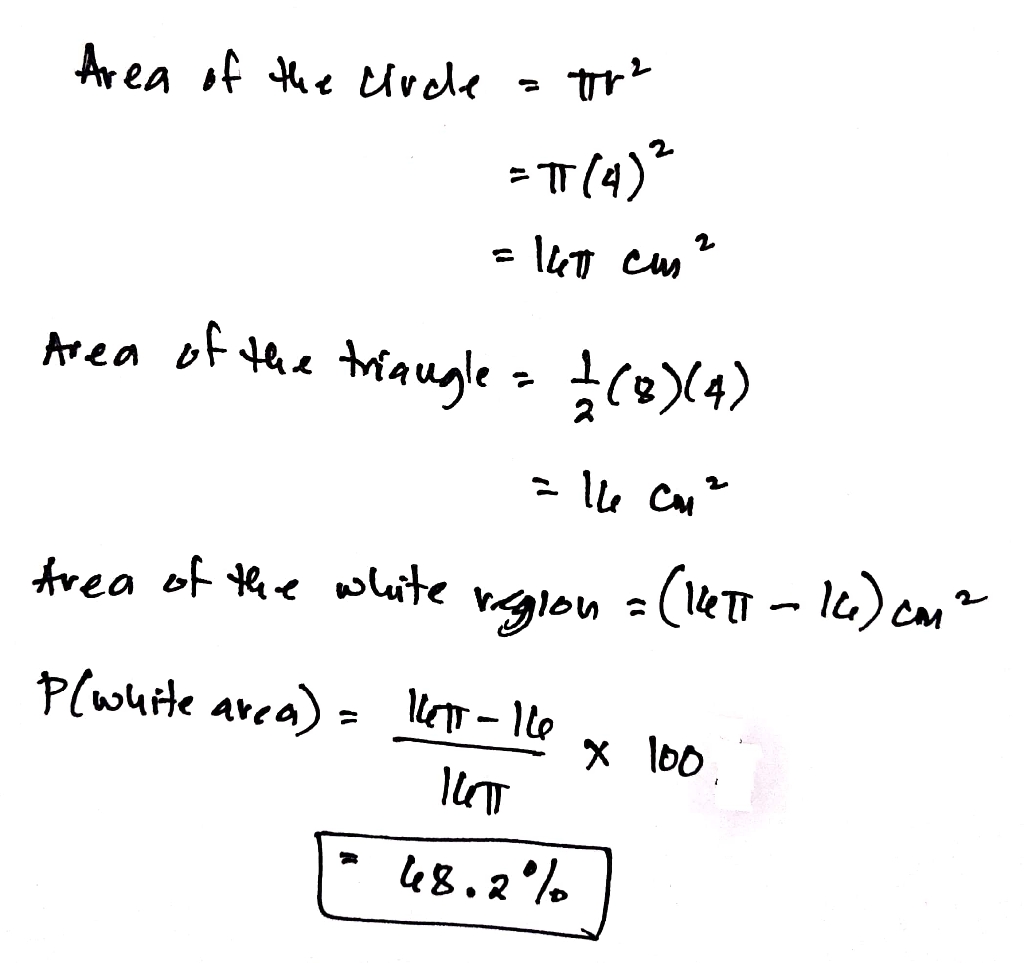 Area of the circle = πr²
= π(4)²
= 16π cm²
Area of the triangle = 1/2 (8)(4)
= 16 cm²
Area of the white region = (16π - 16) cm²
P(white area) = (16π - 16)/(16π) × 100
= 68.2%